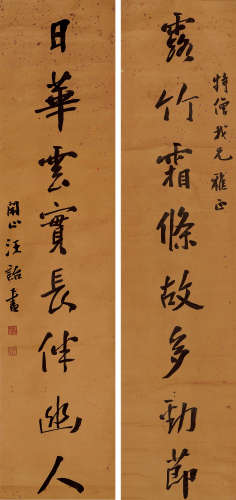 露竹霜條故多勁節
特僧我兄雅正
日華雲實長伴幽人
閬山汪詒書